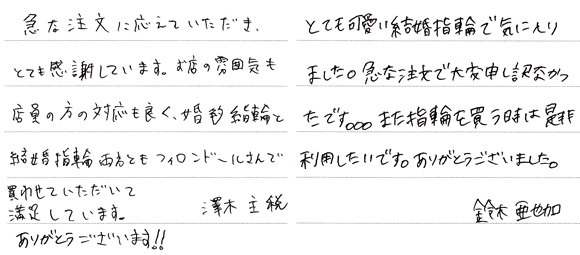 急な注文に応えていただき、
とても感謝しています。お店の雰囲気も
店員の方の対応も良く、婚約指輪と
結婚指輪両方ともフィロンドールさんで
買わせていただいて
満足しています。
澤木 主税
ありがとうございます!!
とても可愛い結婚指輪で気に入り
ました。急な注文で大変申し訳なかっ
たです。。。また指輪を買う時は是非
利用したいです。ありがとうございました。
鈴木 亜也加